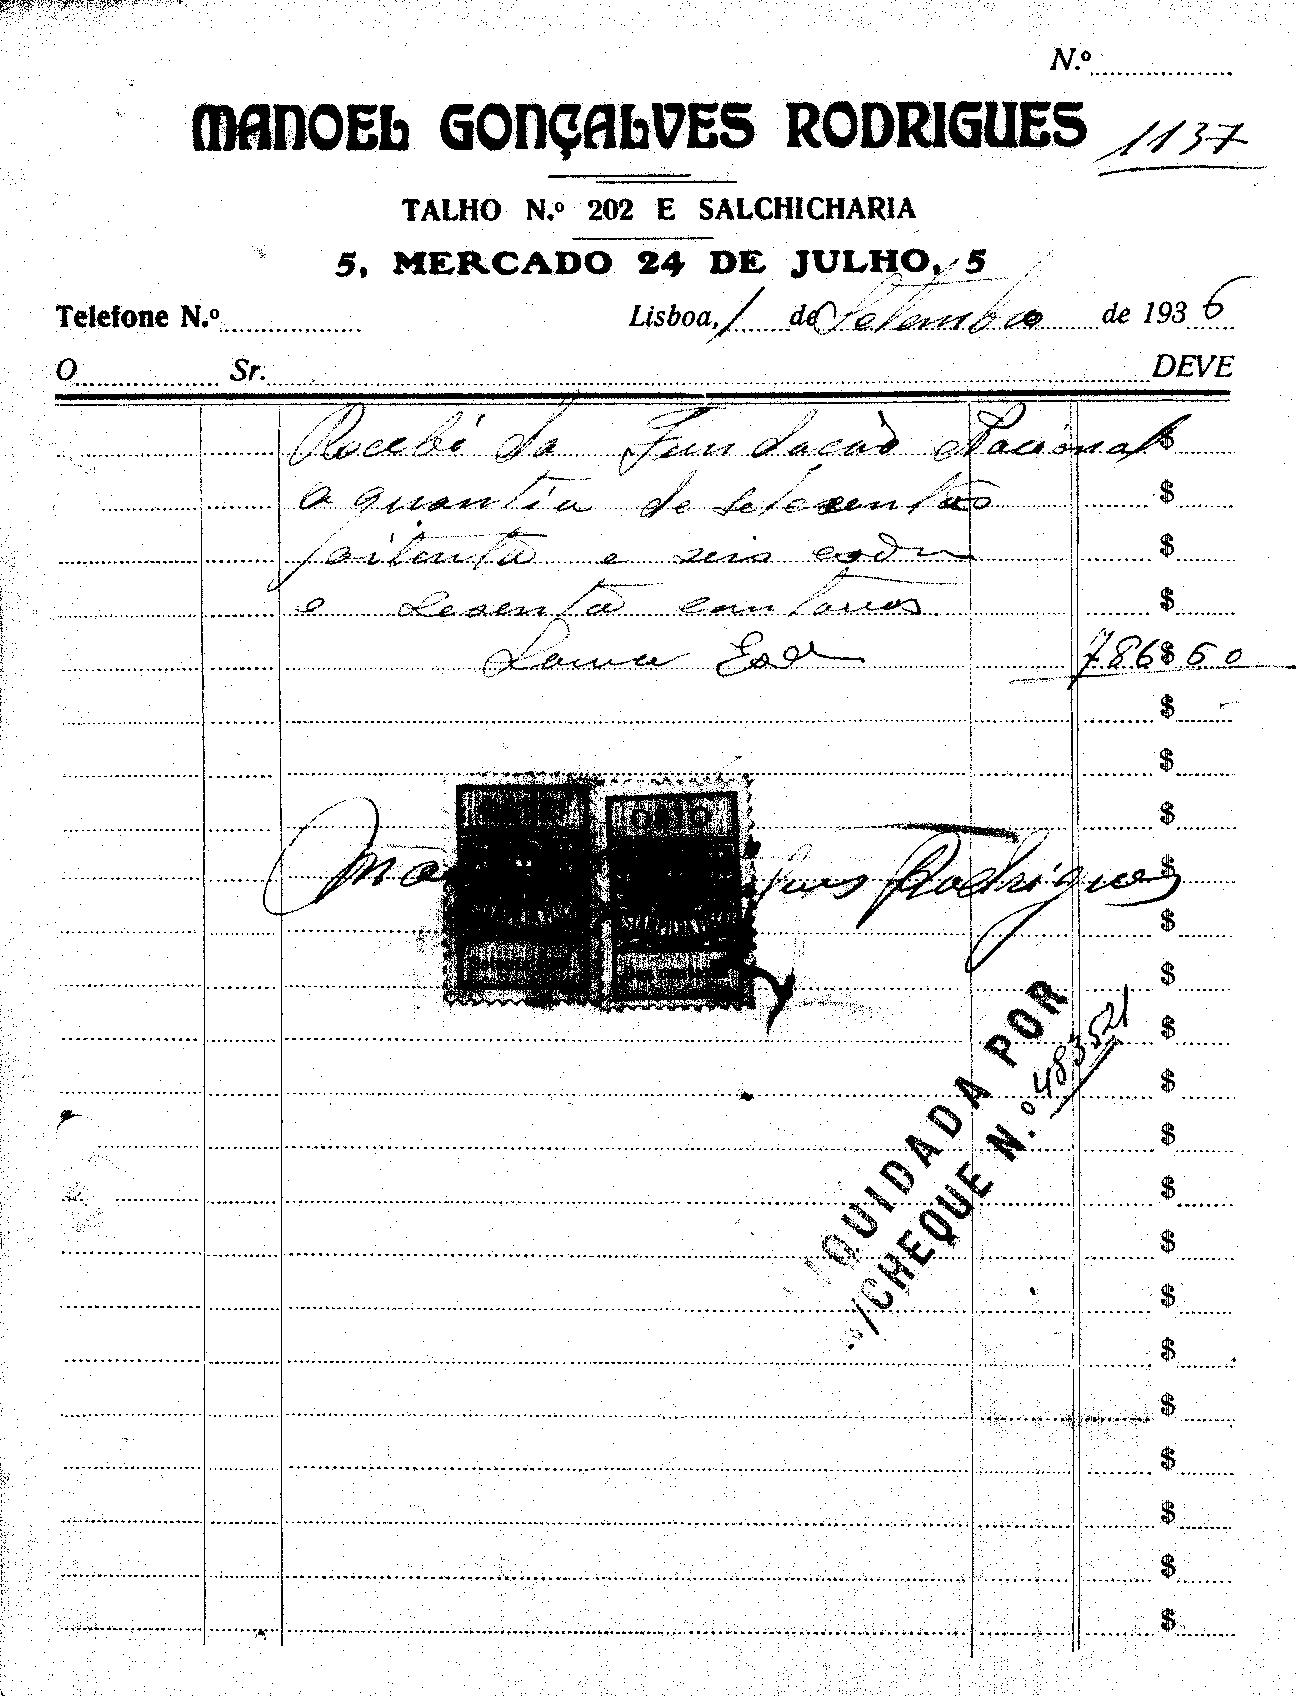 N.º
MANOEL GONÇALVES RODRIGUES
1137
TALHO N.º 202 E SALCHICHARIA
5, MERCADO 24 DE JULHO, 5
Telefone N.º Lisboa, 1 de Setembro de 1936
O Sr. DEVE
Recebi da Fundacáo Nacional $
a quantia de setecentos $
oitenta e seis $
e sesenta centavos $
Soma Esc 786$60
$
$
$
Rodrigues $
$
$
$
$
$
$
$
$
$
$
$
$
$
$
LIQUIDADA POR
CHEQUE N.º 483521